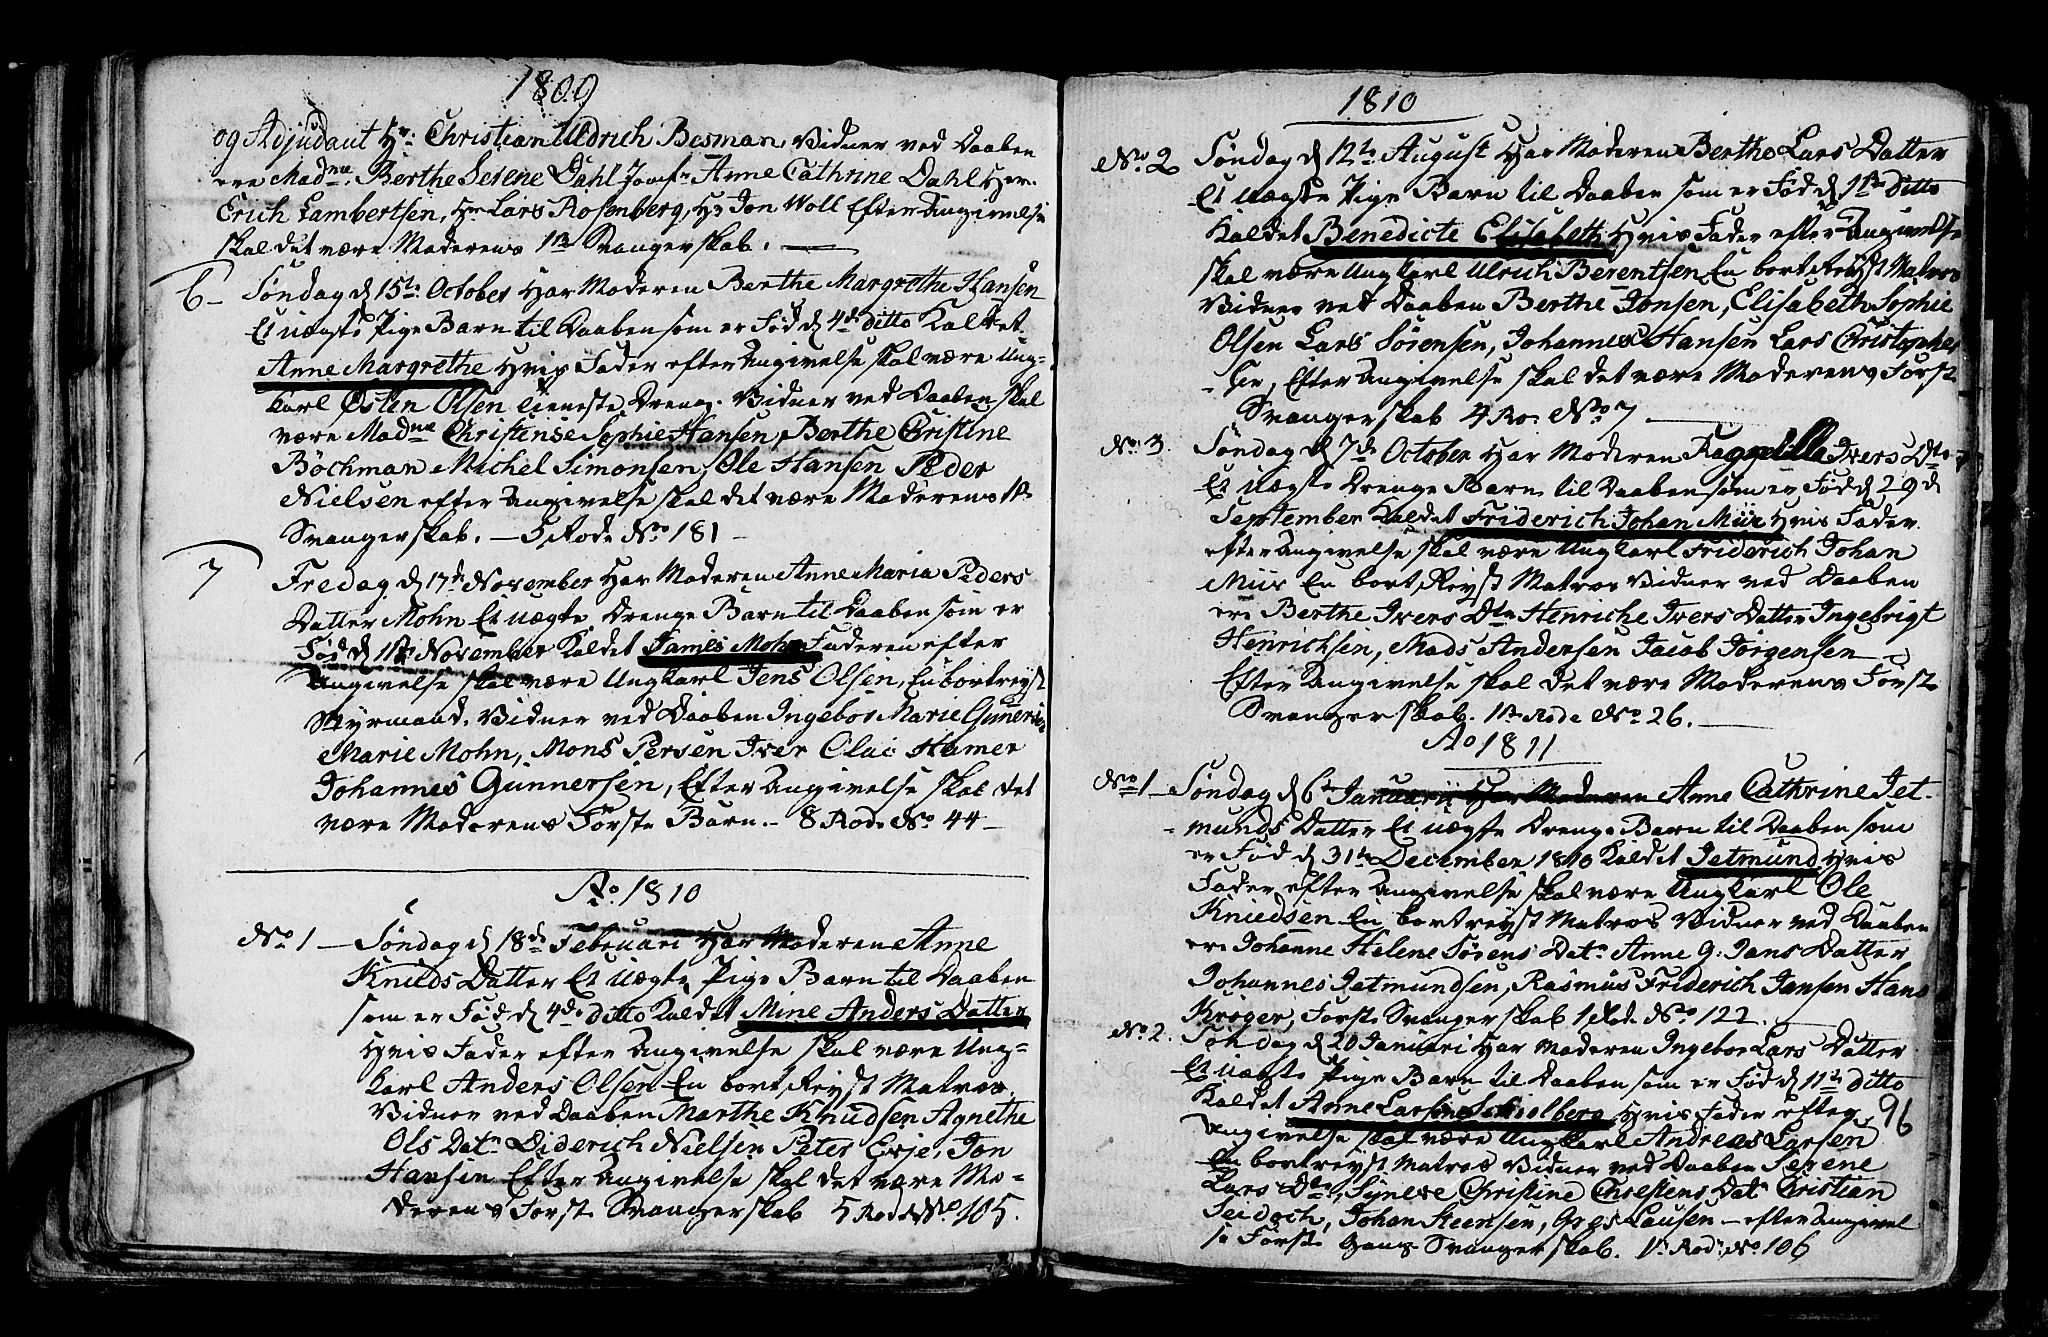 1809
og Adjudant Hr: Christian Uldrich Besman, Vidner ved Daaben
ere Madme. Berthe Serene Dahl Jomfr. Anne Cathrine Dahl Her.
Erich Lambertsen, Hr Lars Rosenberg, Hr Jon Woll Efter Angivelse
skal det være Moderens 1te Svangerskab.
6 Søndag d 15te October Har Moderen Berthe Margrethe Hansen
Et uægte Pige Barn til Daaben som er Fød d 4de ditto Kaldet
Anne Margrethe Hvis Fader efter Angivelse skal være Ung-
karl Østen Olsen tieneste Dreng. Vidner ved Daaben skal
være Madme Christense Sophie Hansen, Berthe Cristine
Böchman Michel Simonsen, Ole Hansen Peder
Nielsen efter Angivelse skal det være Moderens 1te
Svangerskab. 5 Rode No 181
7 Fredag d 17de November Har Moderen Anne Maria Peders
Datter Mohn Et uægte Drenge Barn til Daaben som er
Fød d 1te November Kaldet James Mohn Faderen efter
Angivelse skal være Ungkarl Jens Olsen, En bortreyst
Styrmand. Vidner ved Daaben Ingebor Marie
Marie Mohn, Mons Persen Iver Olai Hamer
Johannes Gunnersen, Efter Angivelse skal det
være Moderens Første Barn. 8 Rode No 44
Ao 1810
No 1 Søndag d 18de Februari Har Moderen Anne
Knuds Datter Et uægte Pige Barn til Daaben
som er Fød d 4de ditto Kaldet Mine Anders Datter
Hvis Fader efter Angivelse skal være Ung-
karl Anders Olsen En bort Reyst Matros.
Vidner ved Daaben Marthe Knudsen Agnethe
Ols Datr Diderich Nielsen Peter Erje, Jon
Hansen Efter Angivelse skal det være Mo-
derens Første Svangerskab 5 Rode No 105.
1810
No. 2 Søndag d 12te August Har Moderen Berthe Lars Datter
Et uægte Pige Barn til Daaben som er Fød d 1te ditto
Kaldet Benedicte Elisabeth Hvis Fader efter Angivelse
skal være Ungkarl Ulrich Berentsen En bort Reyst Matros
Vidner ved Daaben Berthe Jonsen, Elisabeth Sophie
Olsen Lars Sörensen, Johannes Hansen Lars Christopher
Efter Angivelse skal det være Moderens Første
Svangerskab 4 Ro. No 7
No. 3. Søndag d 7de October Har Moderen Ivers Dtr
Et uægte Drenge Barn til Daaben som er Fød d 29d
September Kaldet Friderich Johan Miir Hvis Fader
efter Angivelse skal være Ungkarl Friderich Johan
Miir En bort Reyst Matros Vidner ved Daaben
ere Berthe Ivers Dtr Henriche Ivers Datter Ingebrigt
Henrichsen, Mads Andersen Jacob Jörgensen
Efter Angivelse skal det være Moderens Første
Svangerskab. 1te Rode No 26.
Ao 1811
No 1 Søndag d 6te Januarii Har Moderen Anne Cathrine Jet-
munds Datter Et uægte Drenge Barn til Daaben som
er Fød d 31te December 1810 Kaldet Jetmund Hvis
Fader efter Angivelse skal være Ungkarl Ole
Knudsen En bortreyst Matros Vidner ved Daaben
ere Johanne Helene Sörens Datr Anne G: Jans Datter
Johannes Jetmundsen, Rasmus Friderich Jansen Hans
Kröger, Første Svangerskab 1 Rod. No 122.
No. 2. Søndag d 20 Januari Har Moderen Ingebor Lars Datter
Et uægte Pige Barn til Daaben som er Fød d 11te ditto
Kaldet Anne Larsen Schiolberg Hvis Fader efter 96
Angivelse skal være Ungkarl Andreas Larsen
En bortreyst Matros Vidner ved Daaben Serene
Lars Dtr, Syneve Christine Chrestens Datr Christian
Johan Steensen, Gres Lausen efter Angivel
se Første Gang Svangerskab. 1 Rode No 106